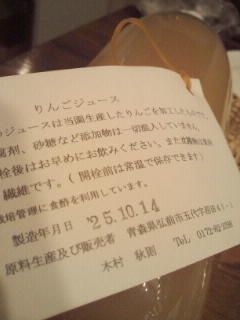 りんごジュース
のジュースは当園生産したりんごを加工したもので、
腐剤、砂糖など添加物は一切混入していません。
栓後はお早めにお飲みください。また沈殿物は
繊維です。(開栓前は常温で保存できます)
栽培管理に食酢を利用しています。
製造年月日 '25.10.14
原料生産及び販売者 青森県弘前市五代字
木村 秋則 TeL 0172-82-